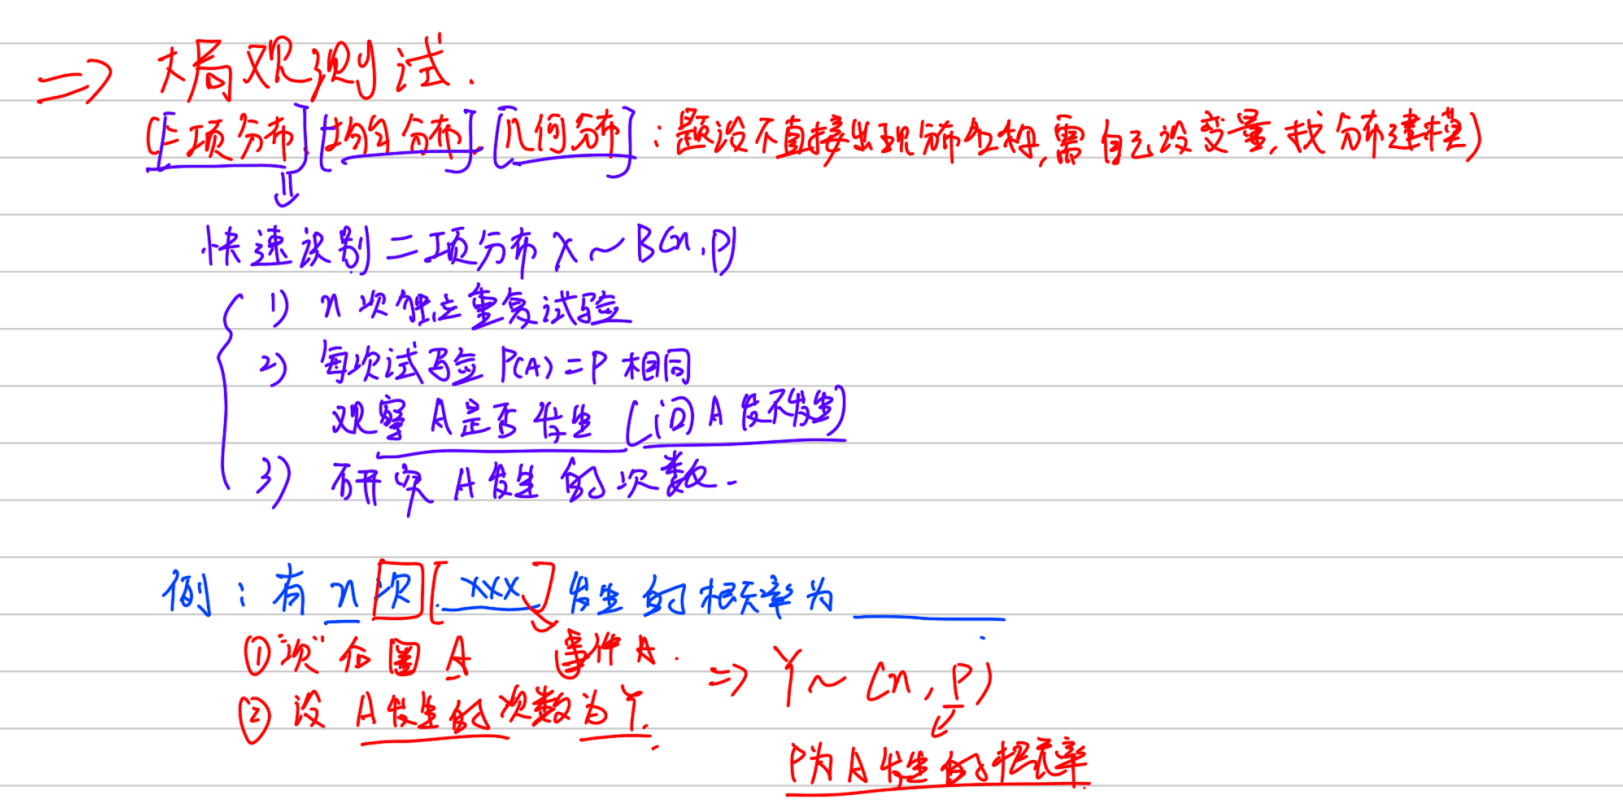 ⇒ 大局观测试.
(二项分布] [均匀分布]. [几何分布] : 题设不直接出现分布名称, 需自己设变量, 找分布建模)
⇓
快速识别二项分布 X ~ B(n, p)
1) n 次独立重复试验
2) 每次试验 P(A) = P 相同
观察 A 是否发生 (问 A 发不发生)
3) 研究 A 发生的次数.
例: 有 n 次 [xxx] 发生的概率为 ______.
① "次" 后圈 A 事件 A.
② 设 A 发生的次数为 Y. ⇒ Y ~ (n, P)
P为 A 发生的概率